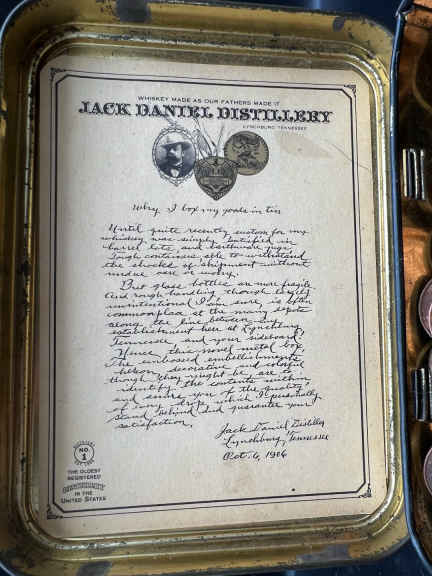 WHISKEY MADE AS OUR FATHERS MADE IT
JACK DANIEL DISTILLERY
LYNCHBURG, TENNESSEE
Why I box my goods in tin
Until quite recently custom for my
whiskey was simply satisfied in
barrel lots and earthware jugs.
Tough containers able to withstand
the shocks of shipment without
undue care or worry.
But glass bottles are more fragile
and rough handling though largely
unintentional I am sure, is often
commonplace at the many stops
along the line between my
establishment here at Lynchburg,
Tennessee, and your sideboard.
Hence this novel metal box.
The embossed embellishments
hereon, decorative and colorful
though they might be, are to
identify the contents within
and assure you of the quality
of every drop which I personally
stand behind and guarantee your
satisfaction.
Jack Daniel Distiller
Lynchburg, Tennessee
Oct. 6, 1906
NO.
1
THE OLDEST
REGISTERED
IN THE
UNITED STATES